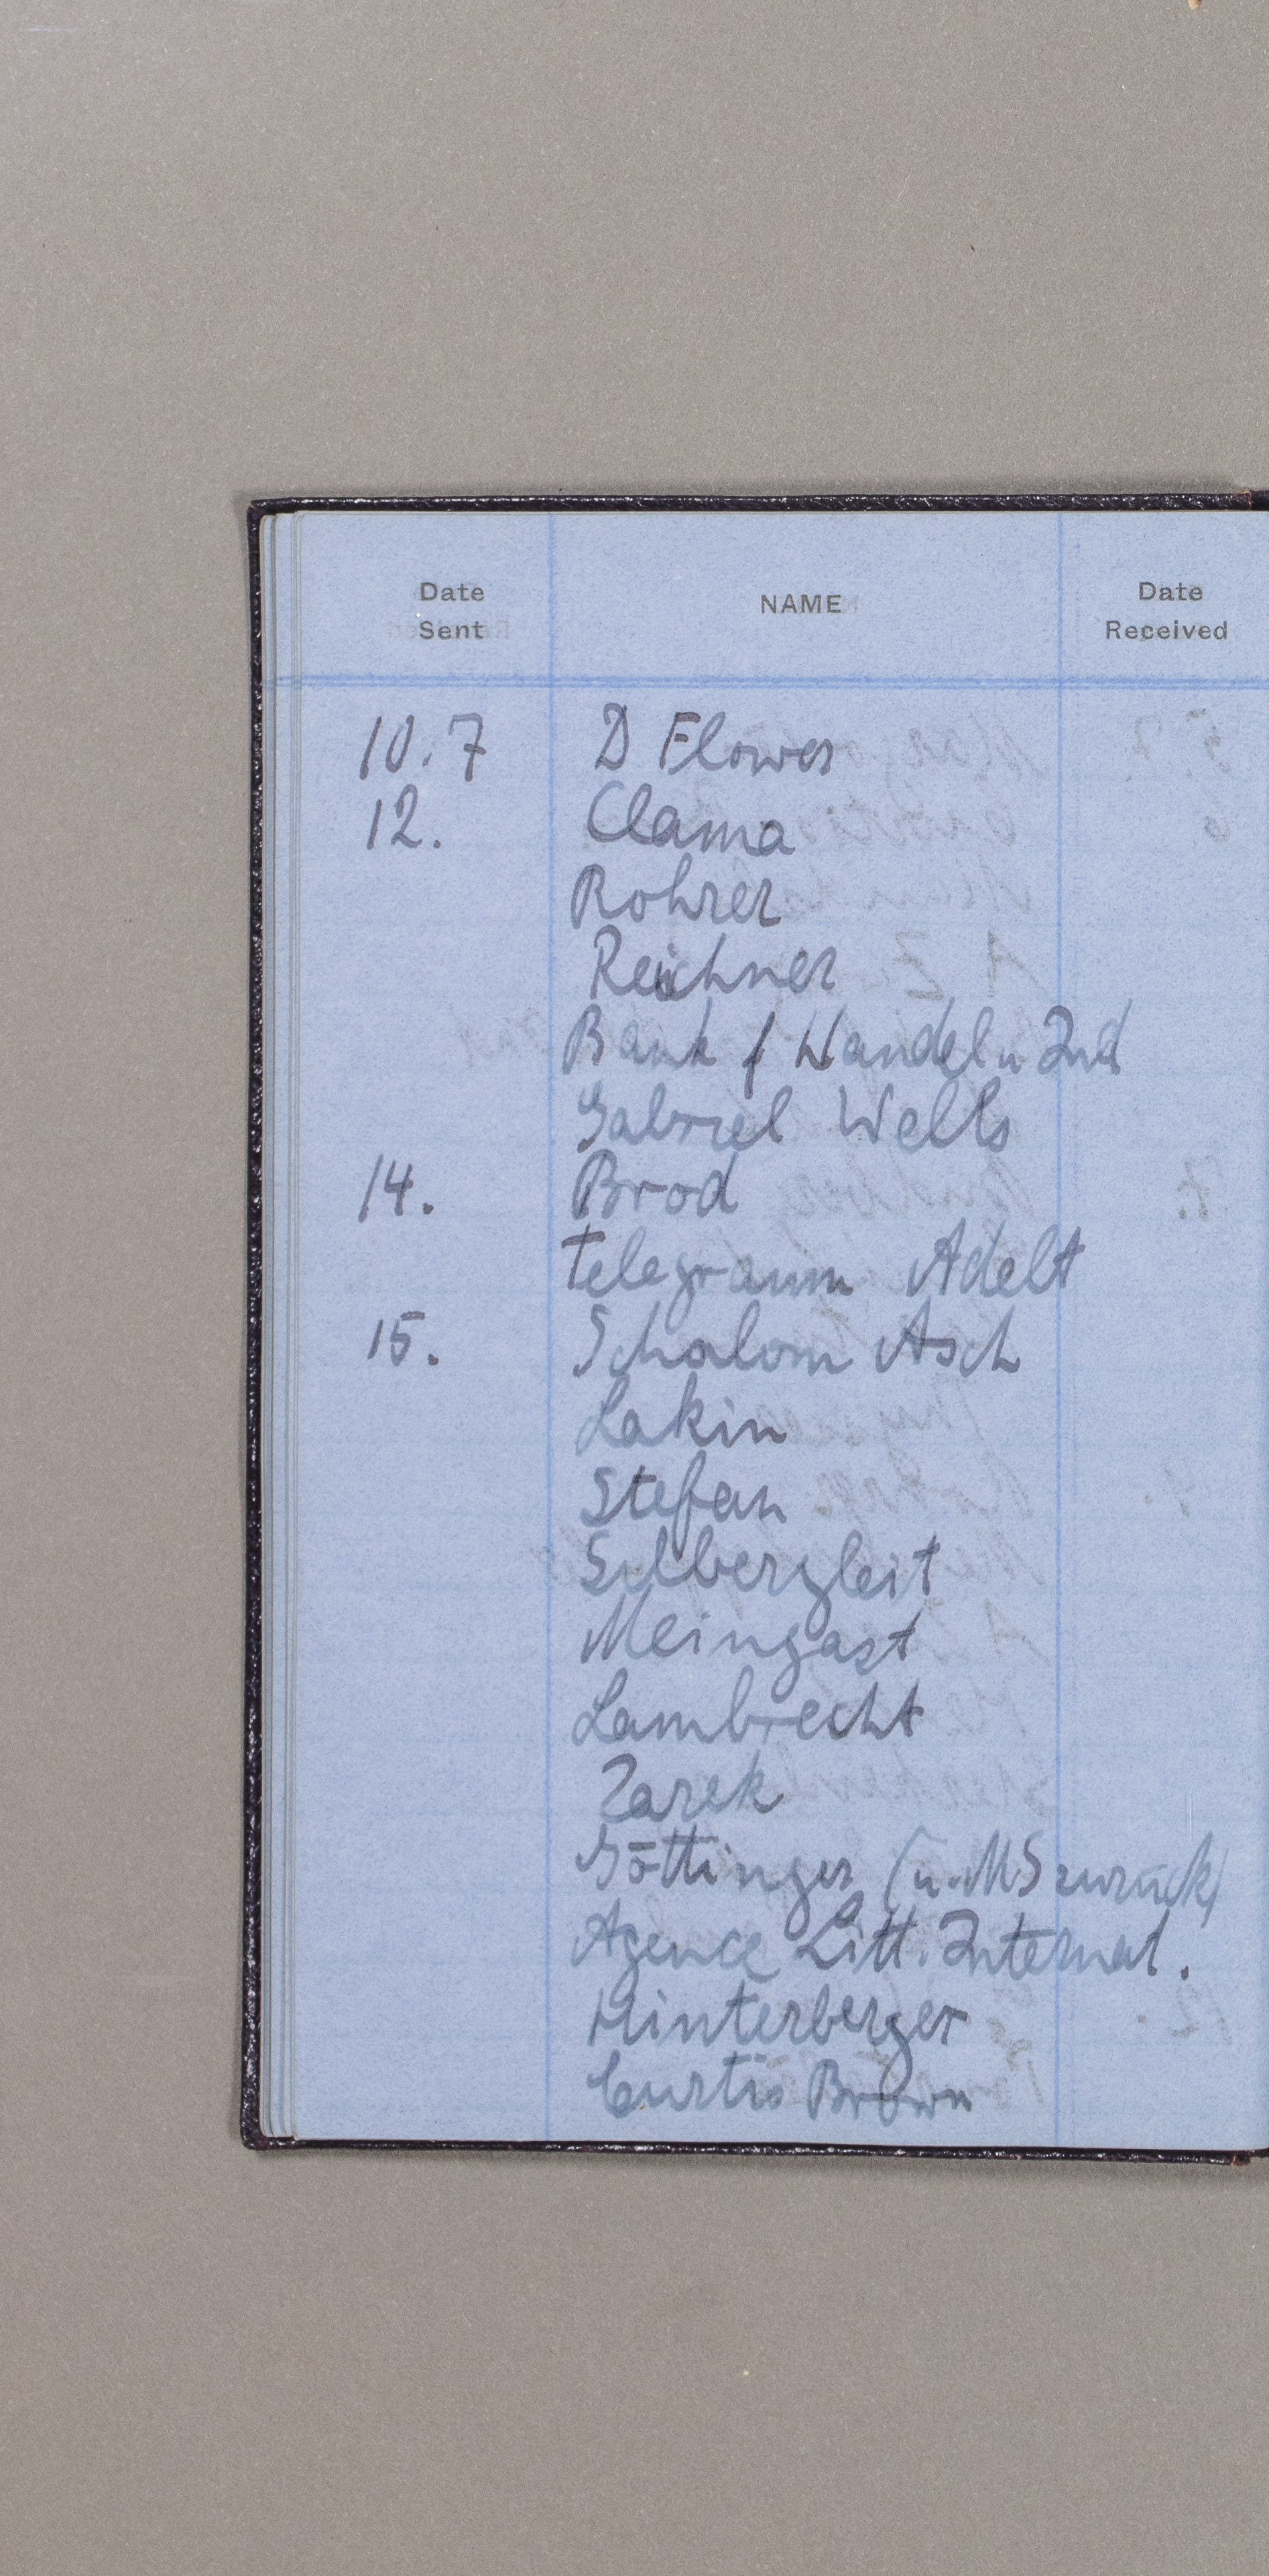 Date Sent NAME Date Received
10.7 D Flower
12. Clama
Rohrer
Reichner
Bank f Handel u Ind
Gabriel Wells
14. Brod
Telegramm Adelt
15. Schalom Asch
Lakin
Stefan
Silbergleit
Meingast
Lambrecht
Zarek
Göttinger (u. MS zurück)
Agence Litt. Internat.
Hinterberger
Curtis Brown